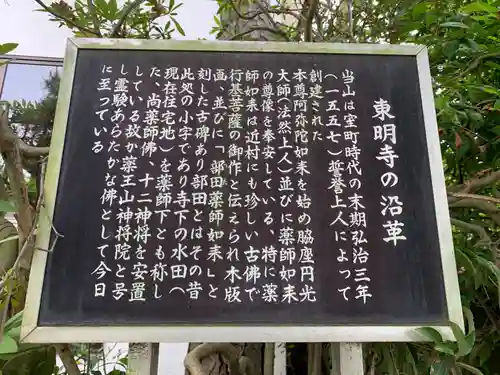 東明寺の沿革
当山は室町時代の末期弘治三年
(一五五七)誓誉上人によって
創建された
本尊阿弥陀如来を始め脇座円光
大師(法然上人)並びに薬師如来
の尊像を奉安している、特に薬
師如来は近村にも珍しい古佛で
行基菩薩の御作と伝えられ木版
画、並びに「部田薬師如来」と
刻した古碑あり部田とはその昔
此処の小字であり寺下の水田(
現在住宅地)を薬師下とも称し
た、尚薬師佛、十二神将を安置
している故か薬王山神将院と号
し霊験あらたかな佛として今日
に至っている